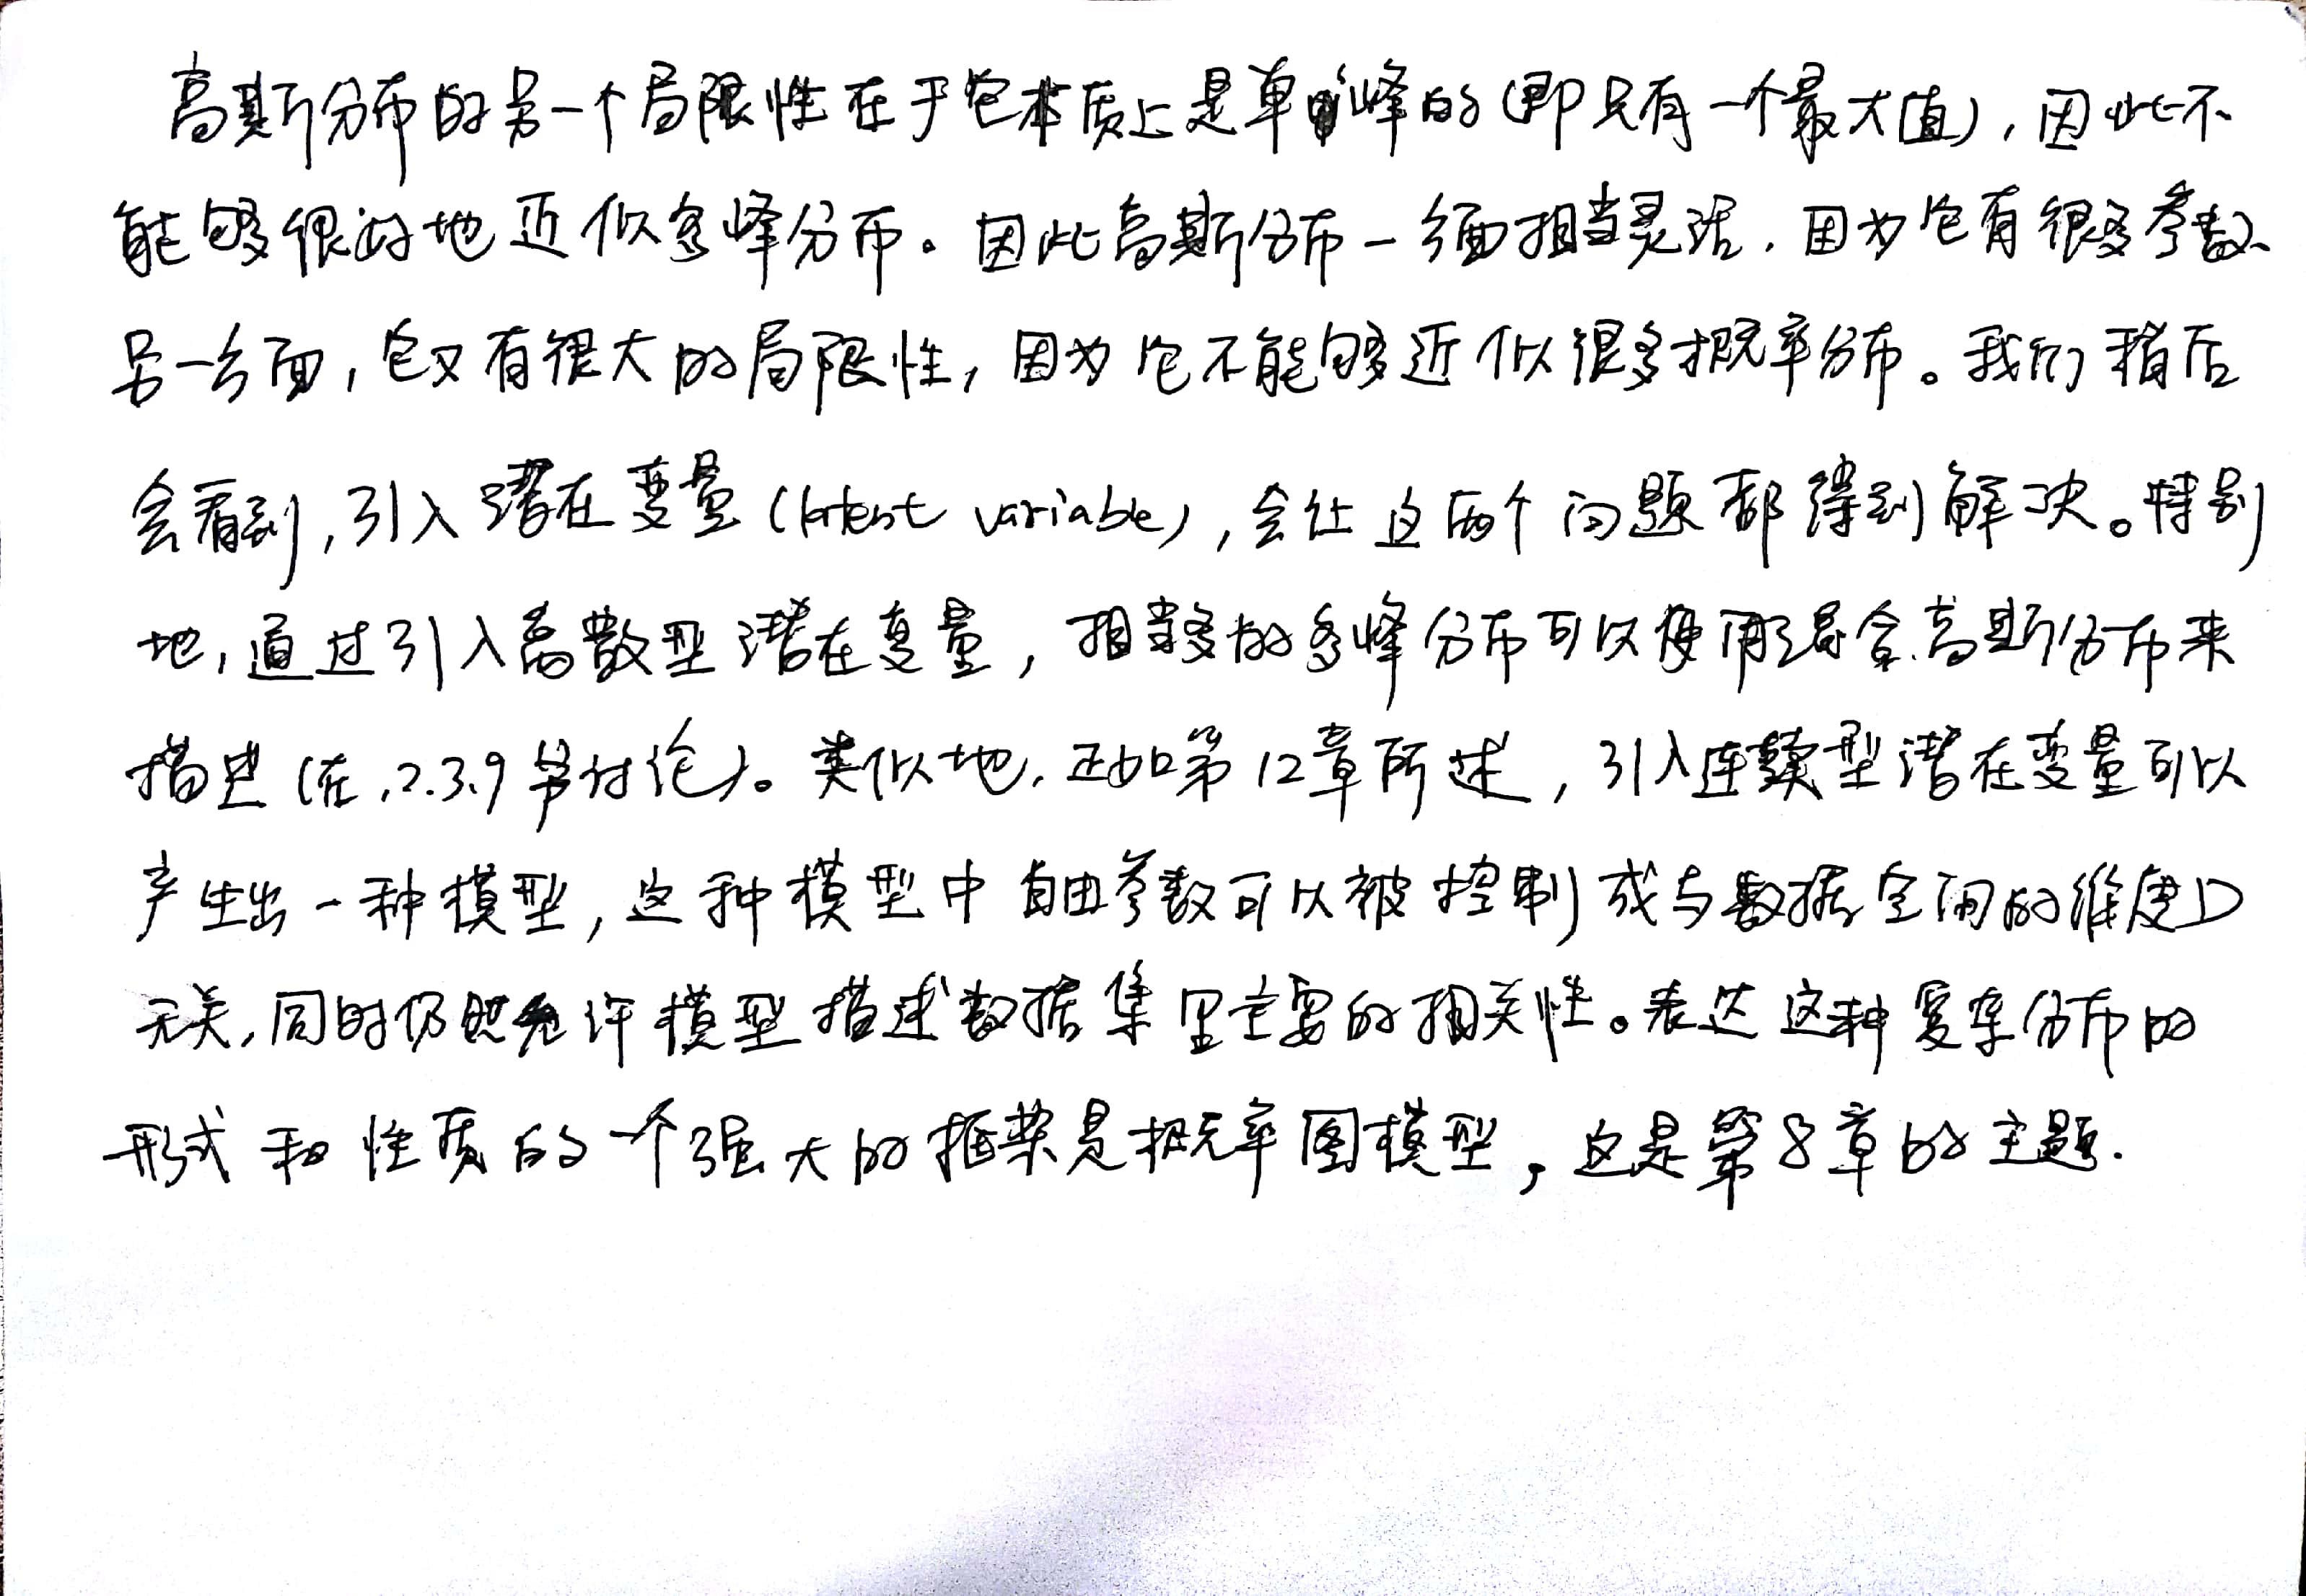 高斯分布的另一个局限性在于它本质上是单峰的(即只有一个最大值),因此不
能够很好地近似多峰分布。因此高斯分布一方面相当灵活,因为它有很多参数、
另一方面,它又有很大的局限性,因为它不能够近似很多概率分布。我们稍后
会看到,引入潜在变量(latent variable),会让这两个问题都得到解决。特别
地,通过引入离散型潜在变量,相当多的多峰分布可以使用混合高斯分布来
描述(在2.3.9节讨论)。类似地,正如第12章所述,引入连续型潜在变量可以
产生出一种模型,这种模型中自由参数可以被控制成与数据空间的维度D
无关,同时仍然允许模型描述数据集里主要的相关性。表达这种复杂分布的
形式和性质的一个强大的框架是概率图模型,这是第8章的主题.